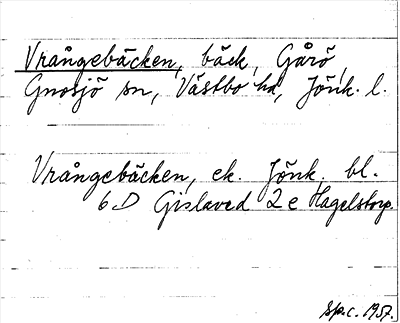 Vrångebäcken, bäck, Gårö,
Gnosjö sn, Västbo hd, Jönk. l.
Vrångebäcken, ek. Jönk. bl.
6 D Gislaved 2 e Hagelstorp.
Sp.c. 1957.